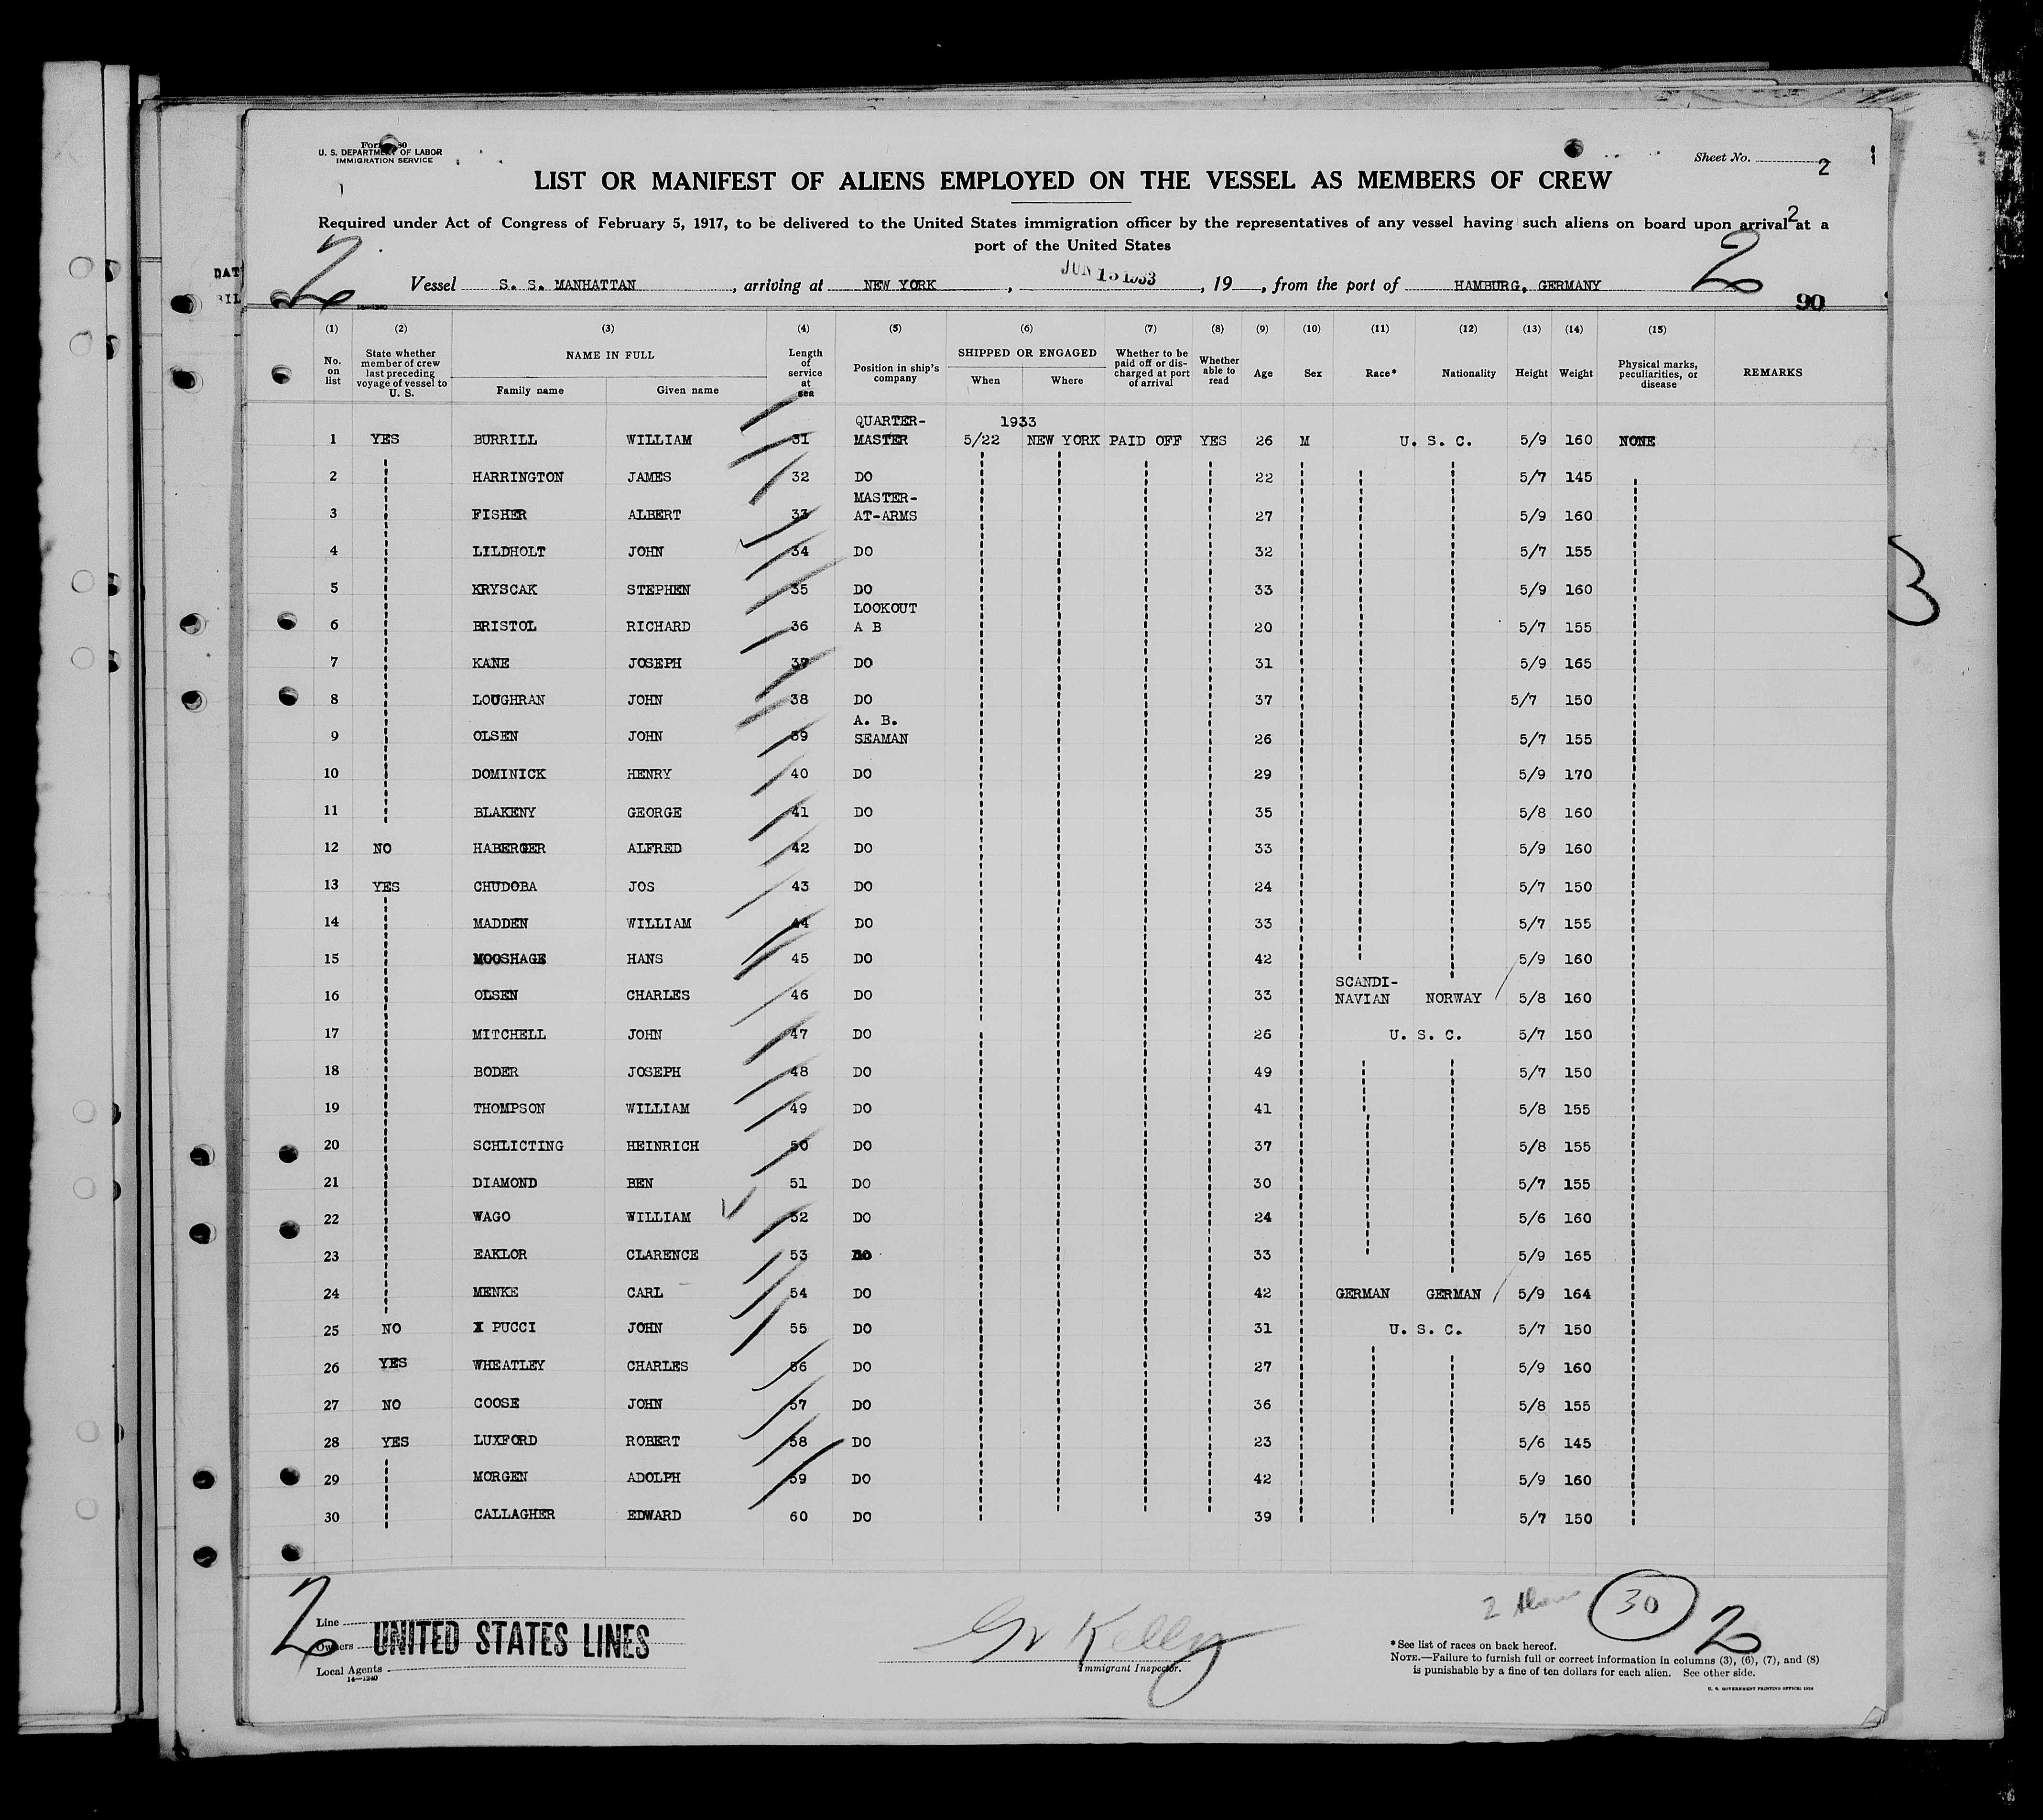 Form 
U. S. DEPARTMENT OF LABOR
IMMIGRATION SERVICE
Sheet No. 2
LIST OR MANIFEST OF ALIENS EMPLOYED ON THE VESSEL AS MEMBERS OF CREW
Required under Act of Congress of February 5, 1917, to be delivered to the United States immigration officer by the representatives of any vessel having such aliens on board upon arrival at a
2
port of the United States
2 Vessel S. S. MANHATTAN, arriving at NEW YORK, JUN 15 1933, 19 , from the port of HAMBURG, GERMANY 2
DAT
BIL
14—1240
90
(1) (2) (3) (4) (5) (6) (7) (8) (9) (10) (11) (12) (13) (14) (15)
No. on list State whether member of crew last preceding voyage of vessel to U. S. NAME IN FULL Family name Given name Length of service at sea Position in ship's company SHIPPED OR ENGAGED When Where Whether to be paid off or discharged at port of arrival Whether able to read Age Sex Race* Nationality Height Weight Physical marks, peculiarities, or disease REMARKS
QUARTER- 1933
1 YES BURRILL WILLIAM 31 MASTER 5/22 NEW YORK PAID OFF YES 26 M U. S. C. 5/9 160 NONE
2 HARRINGTON JAMES 32 DO 22 5/7 145
MASTER-
3 FISHER ALBERT 33 AT-ARMS 27 5/9 160
4 LILDHOLT JOHN 34 DO 32 5/7 155
5 KRYSCAK STEPHEN 35 DO 33 5/9 160
LOOKOUT
6 BRISTOL RICHARD 36 A B 20 5/7 155
7 KANE JOSEPH 37 DO 31 5/9 165
8 LOUGHRAN JOHN 38 DO 37 5/7 150
A. B.
9 OLSEN JOHN 39 SEAMAN 26 5/7 155
10 DOMINICK HENRY 40 DO 29 5/9 170
11 BLAKENY GEORGE 41 DO 35 5/8 160
12 NO HABERGER ALFRED 42 DO 33 5/9 160
13 YES CHUDOBA JOS 43 DO 24 5/7 150
14 MADDEN WILLIAM 44 DO 33 5/7 155
15 MOOSHAGE HANS 45 DO 42 5/9 160
SCANDI-
16 OLSEN CHARLES 46 DO 33 NAVIAN NORWAY 5/8 160
17 MITCHELL JOHN 47 DO 26 U. S. C. 5/7 150
18 BODER JOSEPH 48 DO 49 5/7 150
19 THOMPSON WILLIAM 49 DO 41 5/8 155
20 SCHLICTING HEINRICH 50 DO 37 5/8 155
21 DIAMOND BEN 51 DO 30 5/7 155
22 WAGO WILLIAM 52 DO 24 5/6 160
23 EAKLOR CLARENCE 53 DO 33 5/9 165
24 MENKE CARL 54 DO 42 GERMAN GERMAN 5/9 164
25 NO X PUCCI JOHN 55 DO 31 U. S. C. 5/7 150
26 YES WHEATLEY CHARLES 56 DO 27 5/9 160
27 NO COOSE JOHN 57 DO 36 5/8 155
28 YES LUXFORD ROBERT 58 DO 23 5/6 145
29 MORGEN ADOLPH 59 DO 42 5/9 160
30 CALLAGHER EDWARD 60 DO 39 5/7 150
2 Line
Owners UNITED STATES LINES
Local Agents
14—1240
Kelly
Immigrant Inspector.
2 30 2
*See list of races on back hereof.
NOTE.—Failure to furnish full or correct information in columns (3), (6), (7), and (8)
is punishable by a fine of ten dollars for each alien. See other side.
U. S. GOVERNMENT PRINTING OFFICE: